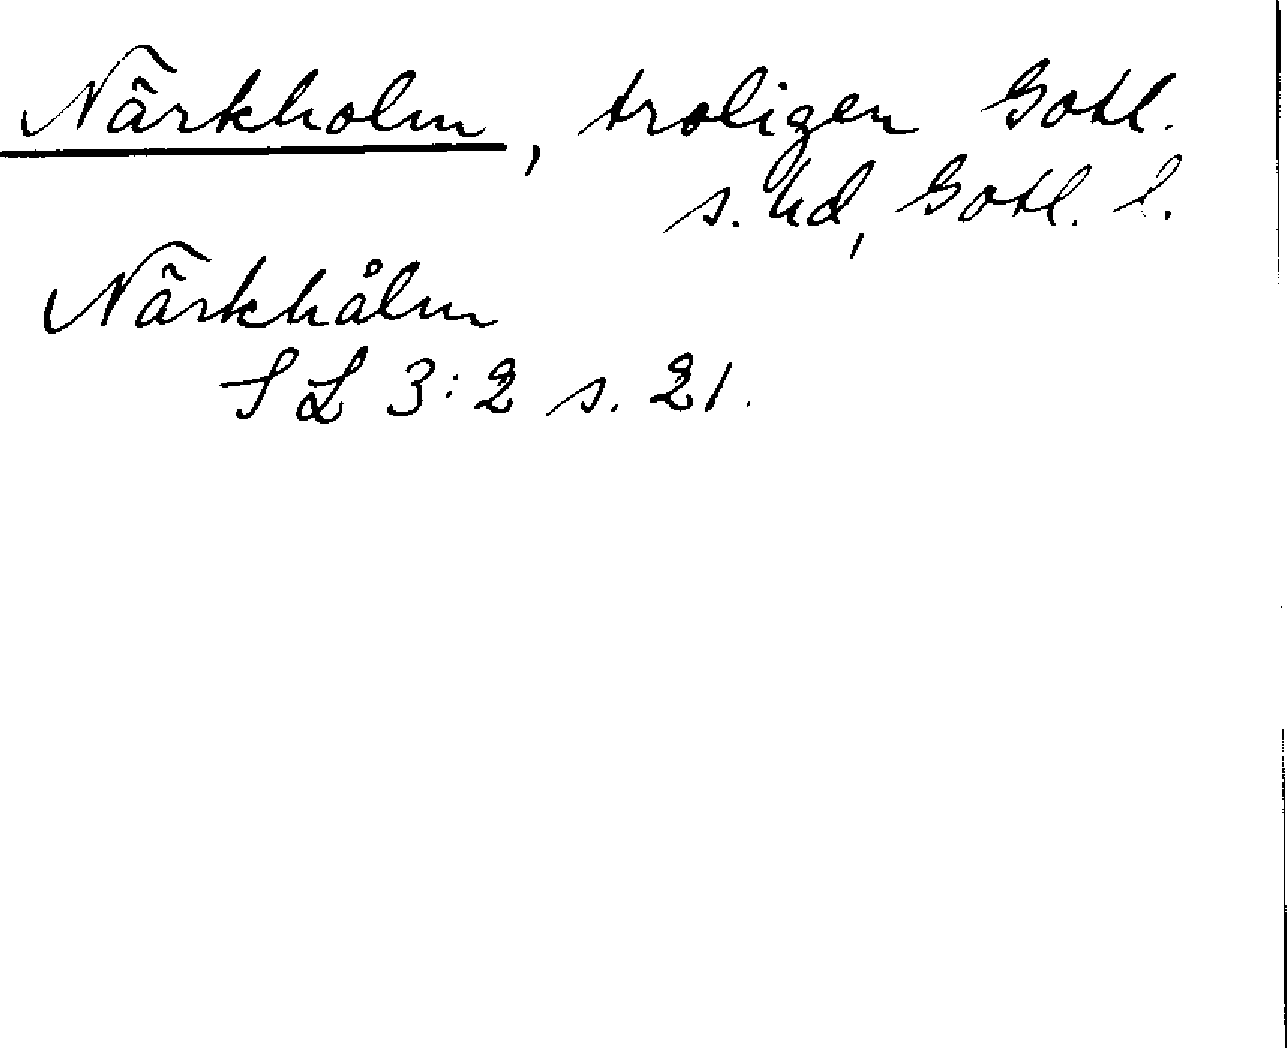 Närkholm, troligen Gotl.
s. hd, Gotl. l.
Närkhålm
SL 3:2 s. 21.